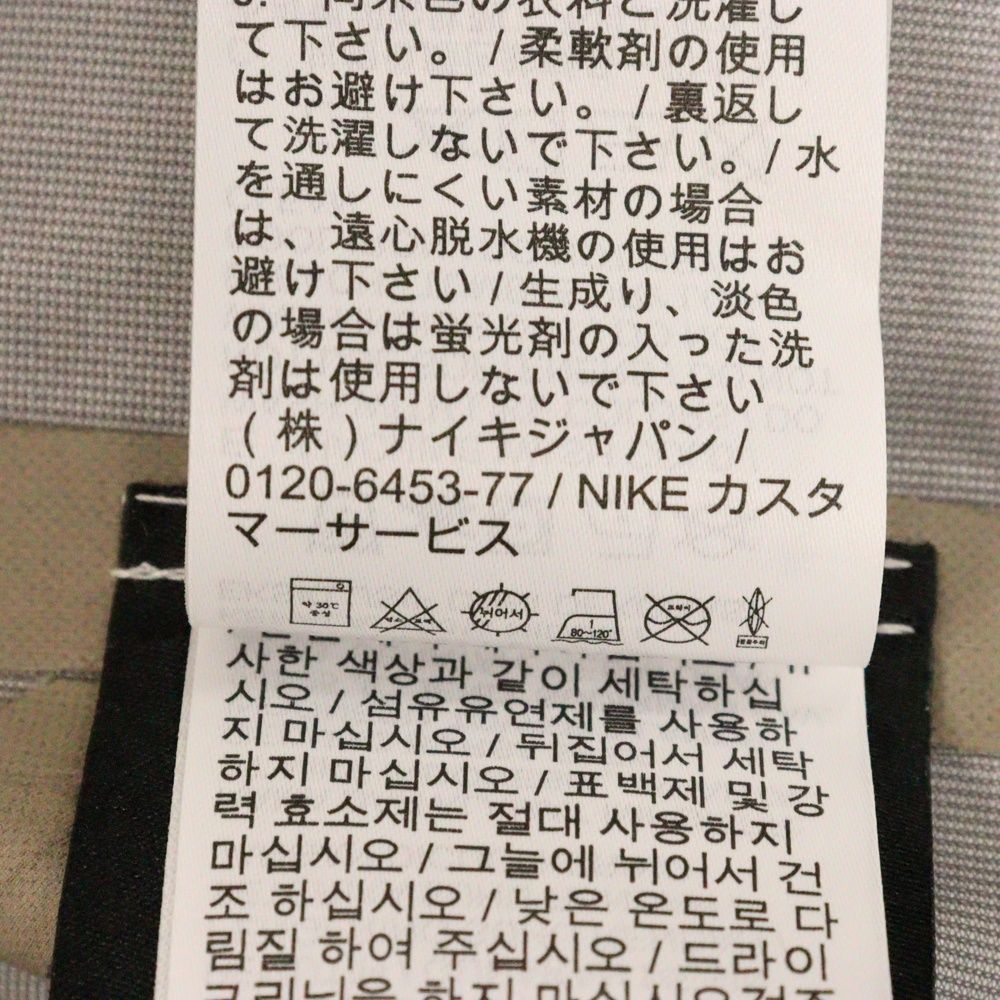 同系色の衣料と洗濯し
て下さい。 / 柔軟剤の使用
はお避け下さい。 / 裏返し
て洗濯しないで下さい。/ 水
を通しにくい素材の場合
は、遠心脱水機の使用はお
避け下さい / 生成り、淡色
の場合は蛍光剤の入った洗
剤は使用しないで下さい
(株) ナイキジャパン /
0120-6453-77 / NIKE カスタ
マーサービス
약 30℃
중성
뉘어서
1
80~120°
드라이
사한 색상과 같이 세탁하십
시오 / 섬유유연제를 사용하
지 마십시오 / 뒤집어서 세탁
하지 마십시오 / 표백제 및 강
력 효소제는 절대 사용하지
마십시오 / 그늘에 뉘어서 건
조 하십시오 / 낮은 온도로 다
림질 하여 주십시오 / 드라이